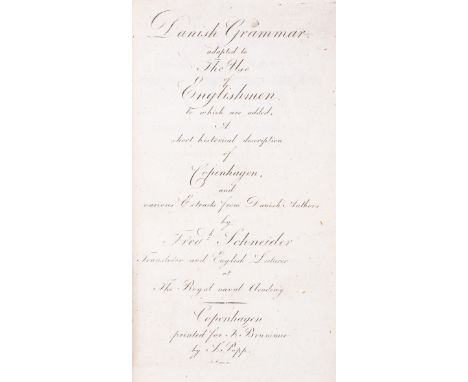 Danish Grammar
adapted to
The Use
of
Englishmen
to which are added,
A
short historical description
of
Copenhagen,
and
various Extracts from Danish Authors
by
Fredk Schneider
Translator and English Lecturer
at
The Royal naval Academy
Copenhagen
printed for F. Brummer
by S. Popp.